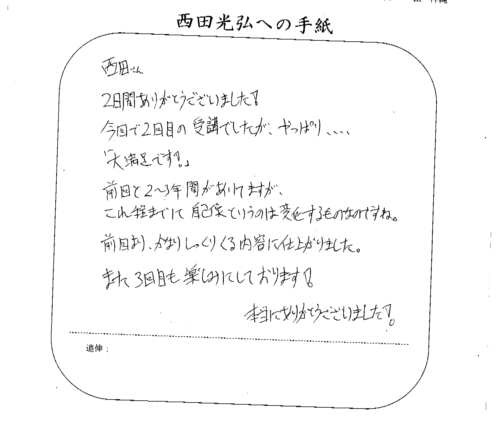 西田光弘への手紙
西田さん
2日間ありがとうございました!
今回で2回目の受講でしたが、やっぱり、、、、
「大満足です!。」
前回と2~3年間があいてますが、
これ程までに自己像というのは変化するものなのですね。
前回より、かなりしっくりくる内容に仕上がりました。
また3回目も楽しみにしております!
本当にありがとうございました!。
追伸: